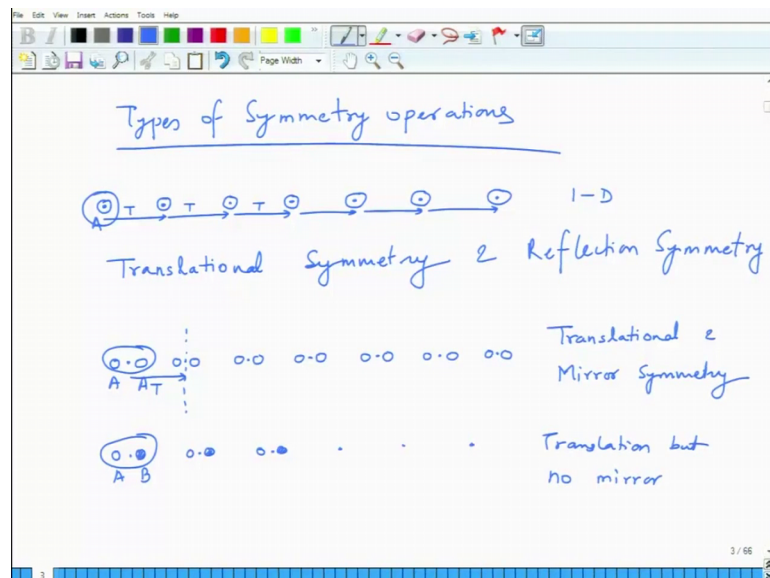 File Edit View Insert Actions Tools Help
B I
Page Width
Types of Symmetry operations
T T T 1-D
A
Translational Symmetry & Reflection Symmetry
Translational &
A A T Mirror Symmetry
Translation but
A B no mirror
3 / 66
3